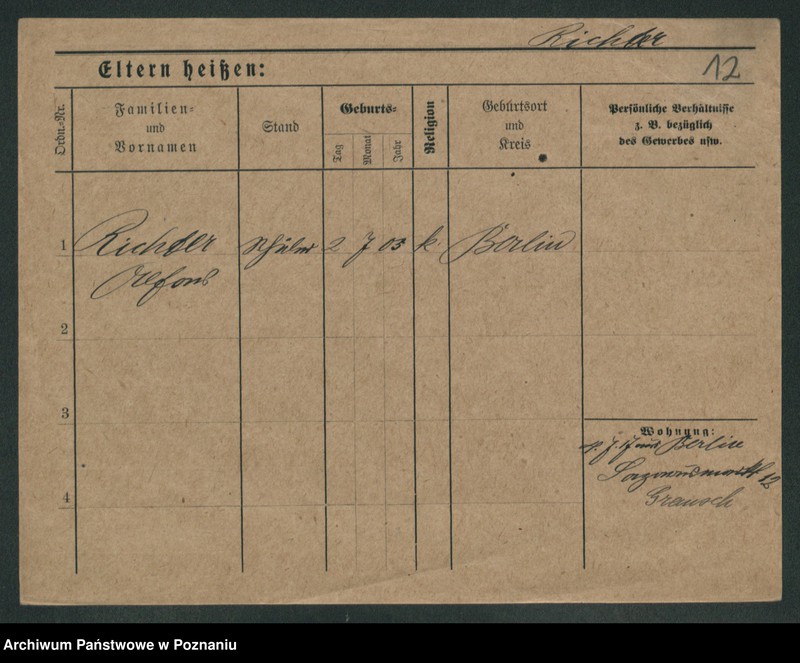 Richter
12
Eltern heißen:
Ordn.-Nr.
Familien=
und
Vornamen
Stand
Geburts=
Tag
Monat
Jahr
Religion
Geburtsort
und
Kreis
Persönliche Verhältnisse
z. B. bezüglich
des Gewerbes usw.
1 Richter Schüler 2 7 03 k Berlin
Alfons
2
3
4
Wohnung:
Berlin
12
Grausch
Archiwum Państwowe w Poznaniu